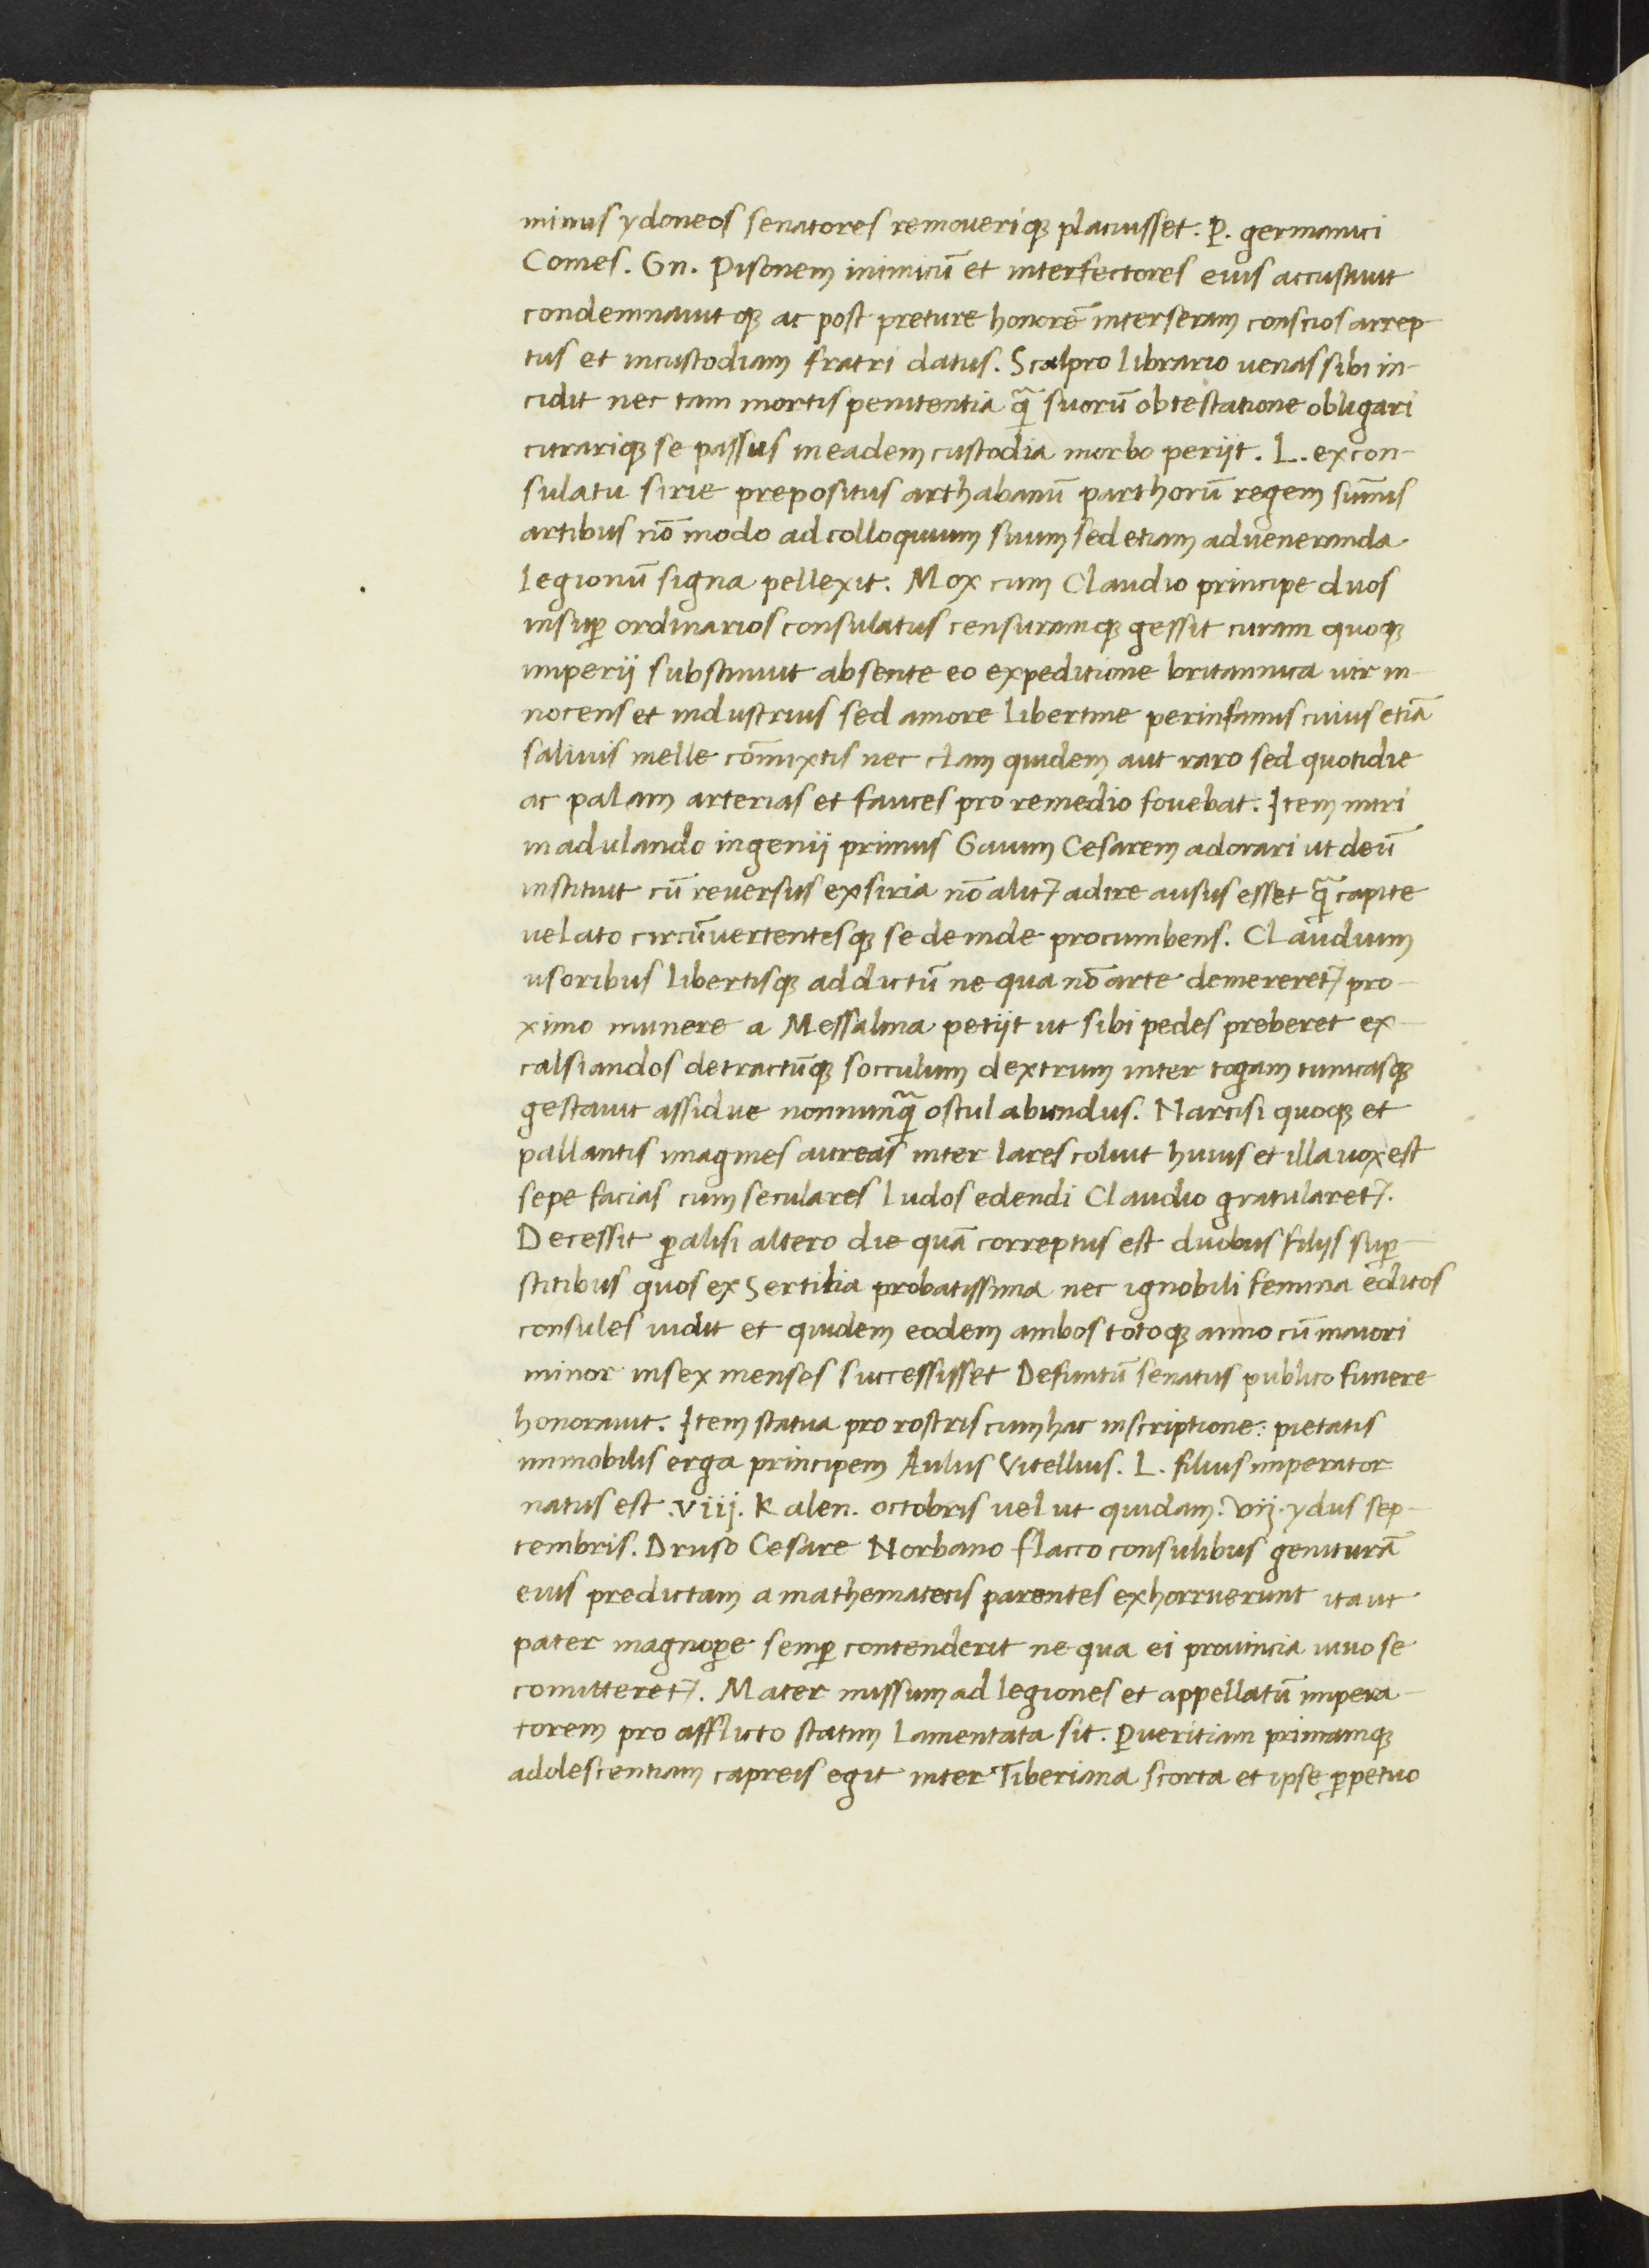 minus ydoneos senatores remoueriq; placuisset. P. germanici
Comes. Gn. Pisonem inimicū et interfectores eius accusauit
condemnauitq; ac post preture honorē interseram conscios arrep
tus et incustodiam fratri datus. Scalpro librario uenas sibi in-
cidit nec tam mortis penitentia q̄ suorū obtestatione obligari
curariq; se passus ineadem custodia morbo perijt. L. excon-
sulatu sirie prepositus arthabanū parthorū regem sūmis
artibus nō modo ad colloquium suum sed etiam adueneranda
legionū signa pellexit. Mox cum Claudio principe duos
insuꝑ ordinarios consulatus censuramq; gessit curam quoq;
imperij substinuit absente eo expeditione britannica uir in-
nocens et industrius sed amore libertine perinfamis cuius etiā
saliuis melle cōmixtis nec clam quidem aut raro sed quotidie
ac palam arterias et fauces pro remedio fouebat. Item miri
inadulando ingenij primus Gaium Cesarem adorari ut deū
instituit cū reuersus exsiria nō alit̄ adire ausus esset q̄ capite
uelato circūuertentesq; se deinde procumbens. Claudium
usoribus libertisq; addictū ne qua nō arte demereret̄ pro-
ximo munere a Messalina petijt ut sibi pedes preberet ex-
calsiandos detractūq; socculum dextrum inter togam tunicasq;
gestauit assidue nonnunq̄ osculabundus. Narcisi quoq; et
pallantis imagines aureas inter lares coluit huius et illa uox est
sepe facias cum seculares ludos edendi Claudio gratularet̄.
Decessit ꝑalisi altero die quā correptus est duobus filijs suꝑ-
stitibus quos ex Sertilia probatissima nec ignobili femina editos
consules uidit et quidem eodem ambos totoq; anno cū maiori
minor insex menses successisset Defuntū senatus publico funere
honorauit. Item statua pro rostris cum hac inscriptione: pietatis
immobilis erga principem Aulus Vitellius. L. filius imperator
natus est .viij. Kalen. octobris uel ut quidam. vij. ydus sep-
tembris. Druso Cesare Norbano flacco consulibus geniturā
eius predictam a mathematecis parentes exhorruerunt ita ut
pater magnoꝑe semꝑ contenderit ne qua ei prouincia uiuo se
comitteret̄. Mater missum ad legiones et appellatū impera-
torem pro afflicto statim lamentata sit. Pueritiam primamq;
adolescentiam capreis egit inter Tiberiana scorta et ipse ꝑpetuo